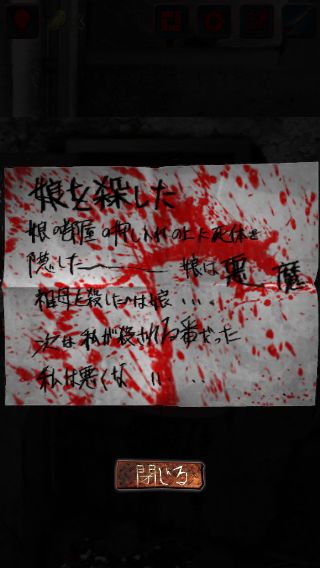 娘を殺した
娘の部屋の押し入れの上に死体を
隠した 娘は悪魔
祖母を殺したのは娘...
次は私が殺される番だった
私は悪くな
閉じる